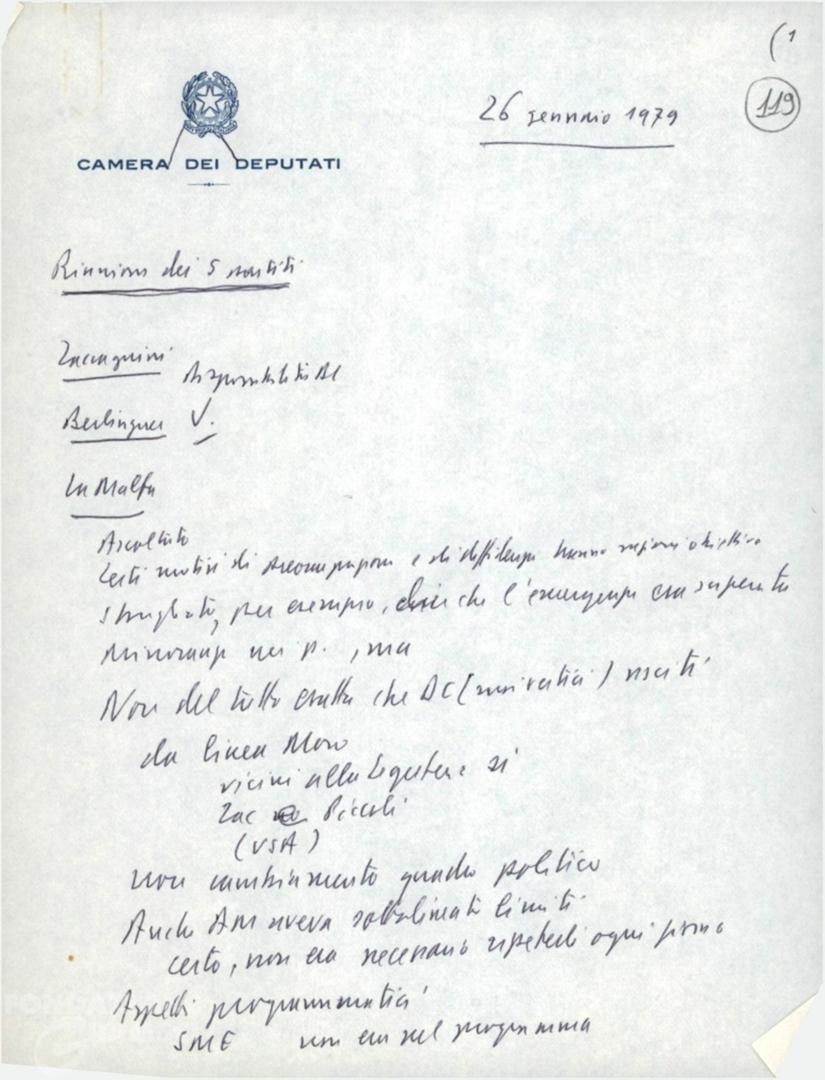 (1
119
26 gennaio 1979
CAMERA DEI DEPUTATI
Riunione dei 5 partiti
Zaccagnini
Responsabilità DC
Berlinguer V.
La Malfa
Ascoltato
Certi motivi di preoccupazione e di diffidenza hanno ragioni obiettive
Sbagliato, per esempio, dire che l'emergenza era superata
Minoranze nei p., ma
Non del tutto esatto che DC ( ) usciti
da linea Moro
vicini alla Segreteria sì
Zac e Piccoli
(USA)
non cambiamento quadro politico
Anche AM aveva sottolineato limiti
certo, non era necessario ripeterli ogni giorno
Aspetti programmatici
SME non era nel programma